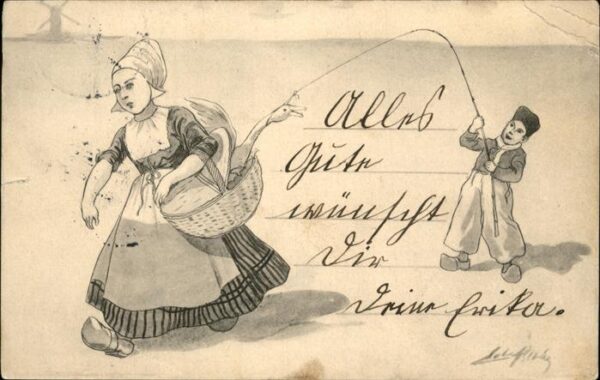 Alles
Gute
wünscht
Dir
Deine Erika.